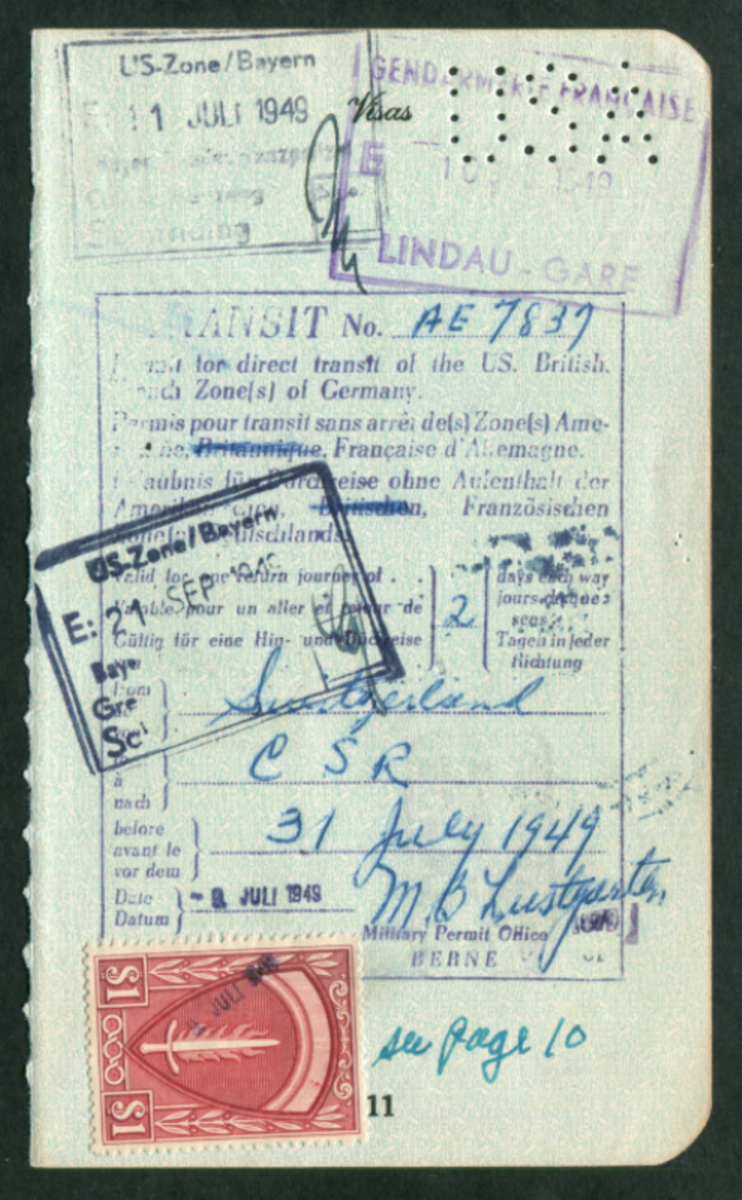 US-Zone/Bayern
E 11 JULI 1949
Visas
GENDARMERIE FRANÇAISE
E 10 1949
LINDAU - GARE
USA
TRANSIT No. AE 7837
for direct transit of the US. British.
Zone(s) of Germany.
Permis pour transit sans arrêt de(s) Zone(s) Ame-
Britannique, Française d'Allemagne.
für Durchreise ohne Aufenthalt der
Britischen, Französischen
US-Zone/Bayern
E: 21 SEP 1949
Baye
Gre
Sc
Valid for one return journey of . .
Valable pour un aller et retour de
Gültig für eine Hin- und Rückreise
2
days each way
jours chaque
sens
Tagen in jeder
Richtung
from
Switzerland
à
nach
C S R
before
avant le
vor dem
31 July 1949
Date
Datum
- 9. JULI 1949
M. B Lustgarten
Military Permit Office
BERNE
$1
$1
JULI
see page 10
11